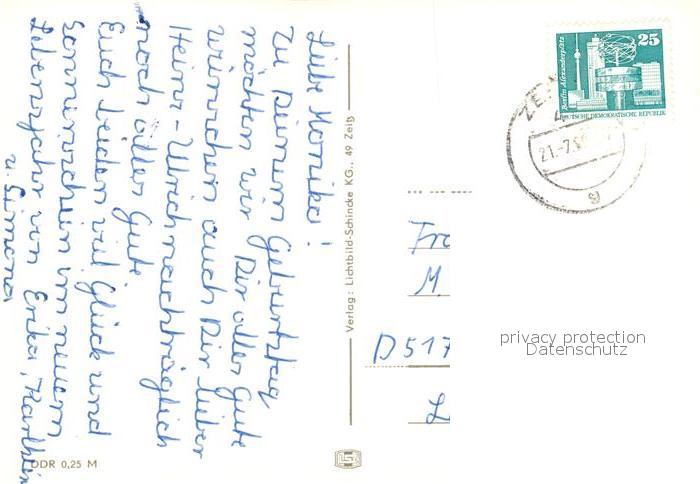 Liebe Monika!
Zu Deinem Geburtstag
möchten wir Dir alles Gute
wünschen auch Dir lieber
Heinz-Ulrich nachträglich
noch alles Gute.
Euch beiden viel Glück und
Sonnenschein im neuem
Lebensjahr von Erika, Karlhein
u. Simona
DDR 0,25 M
Verlag: Lichtbild-Schincke KG., 49 Zeitz
25
Berlin, Alexanderplatz
DEUTSCHE DEMOKRATISCHE REPUBLIK
21.-7.
g
Fr
M.
D 517
L
privacy protection
Datenschutz